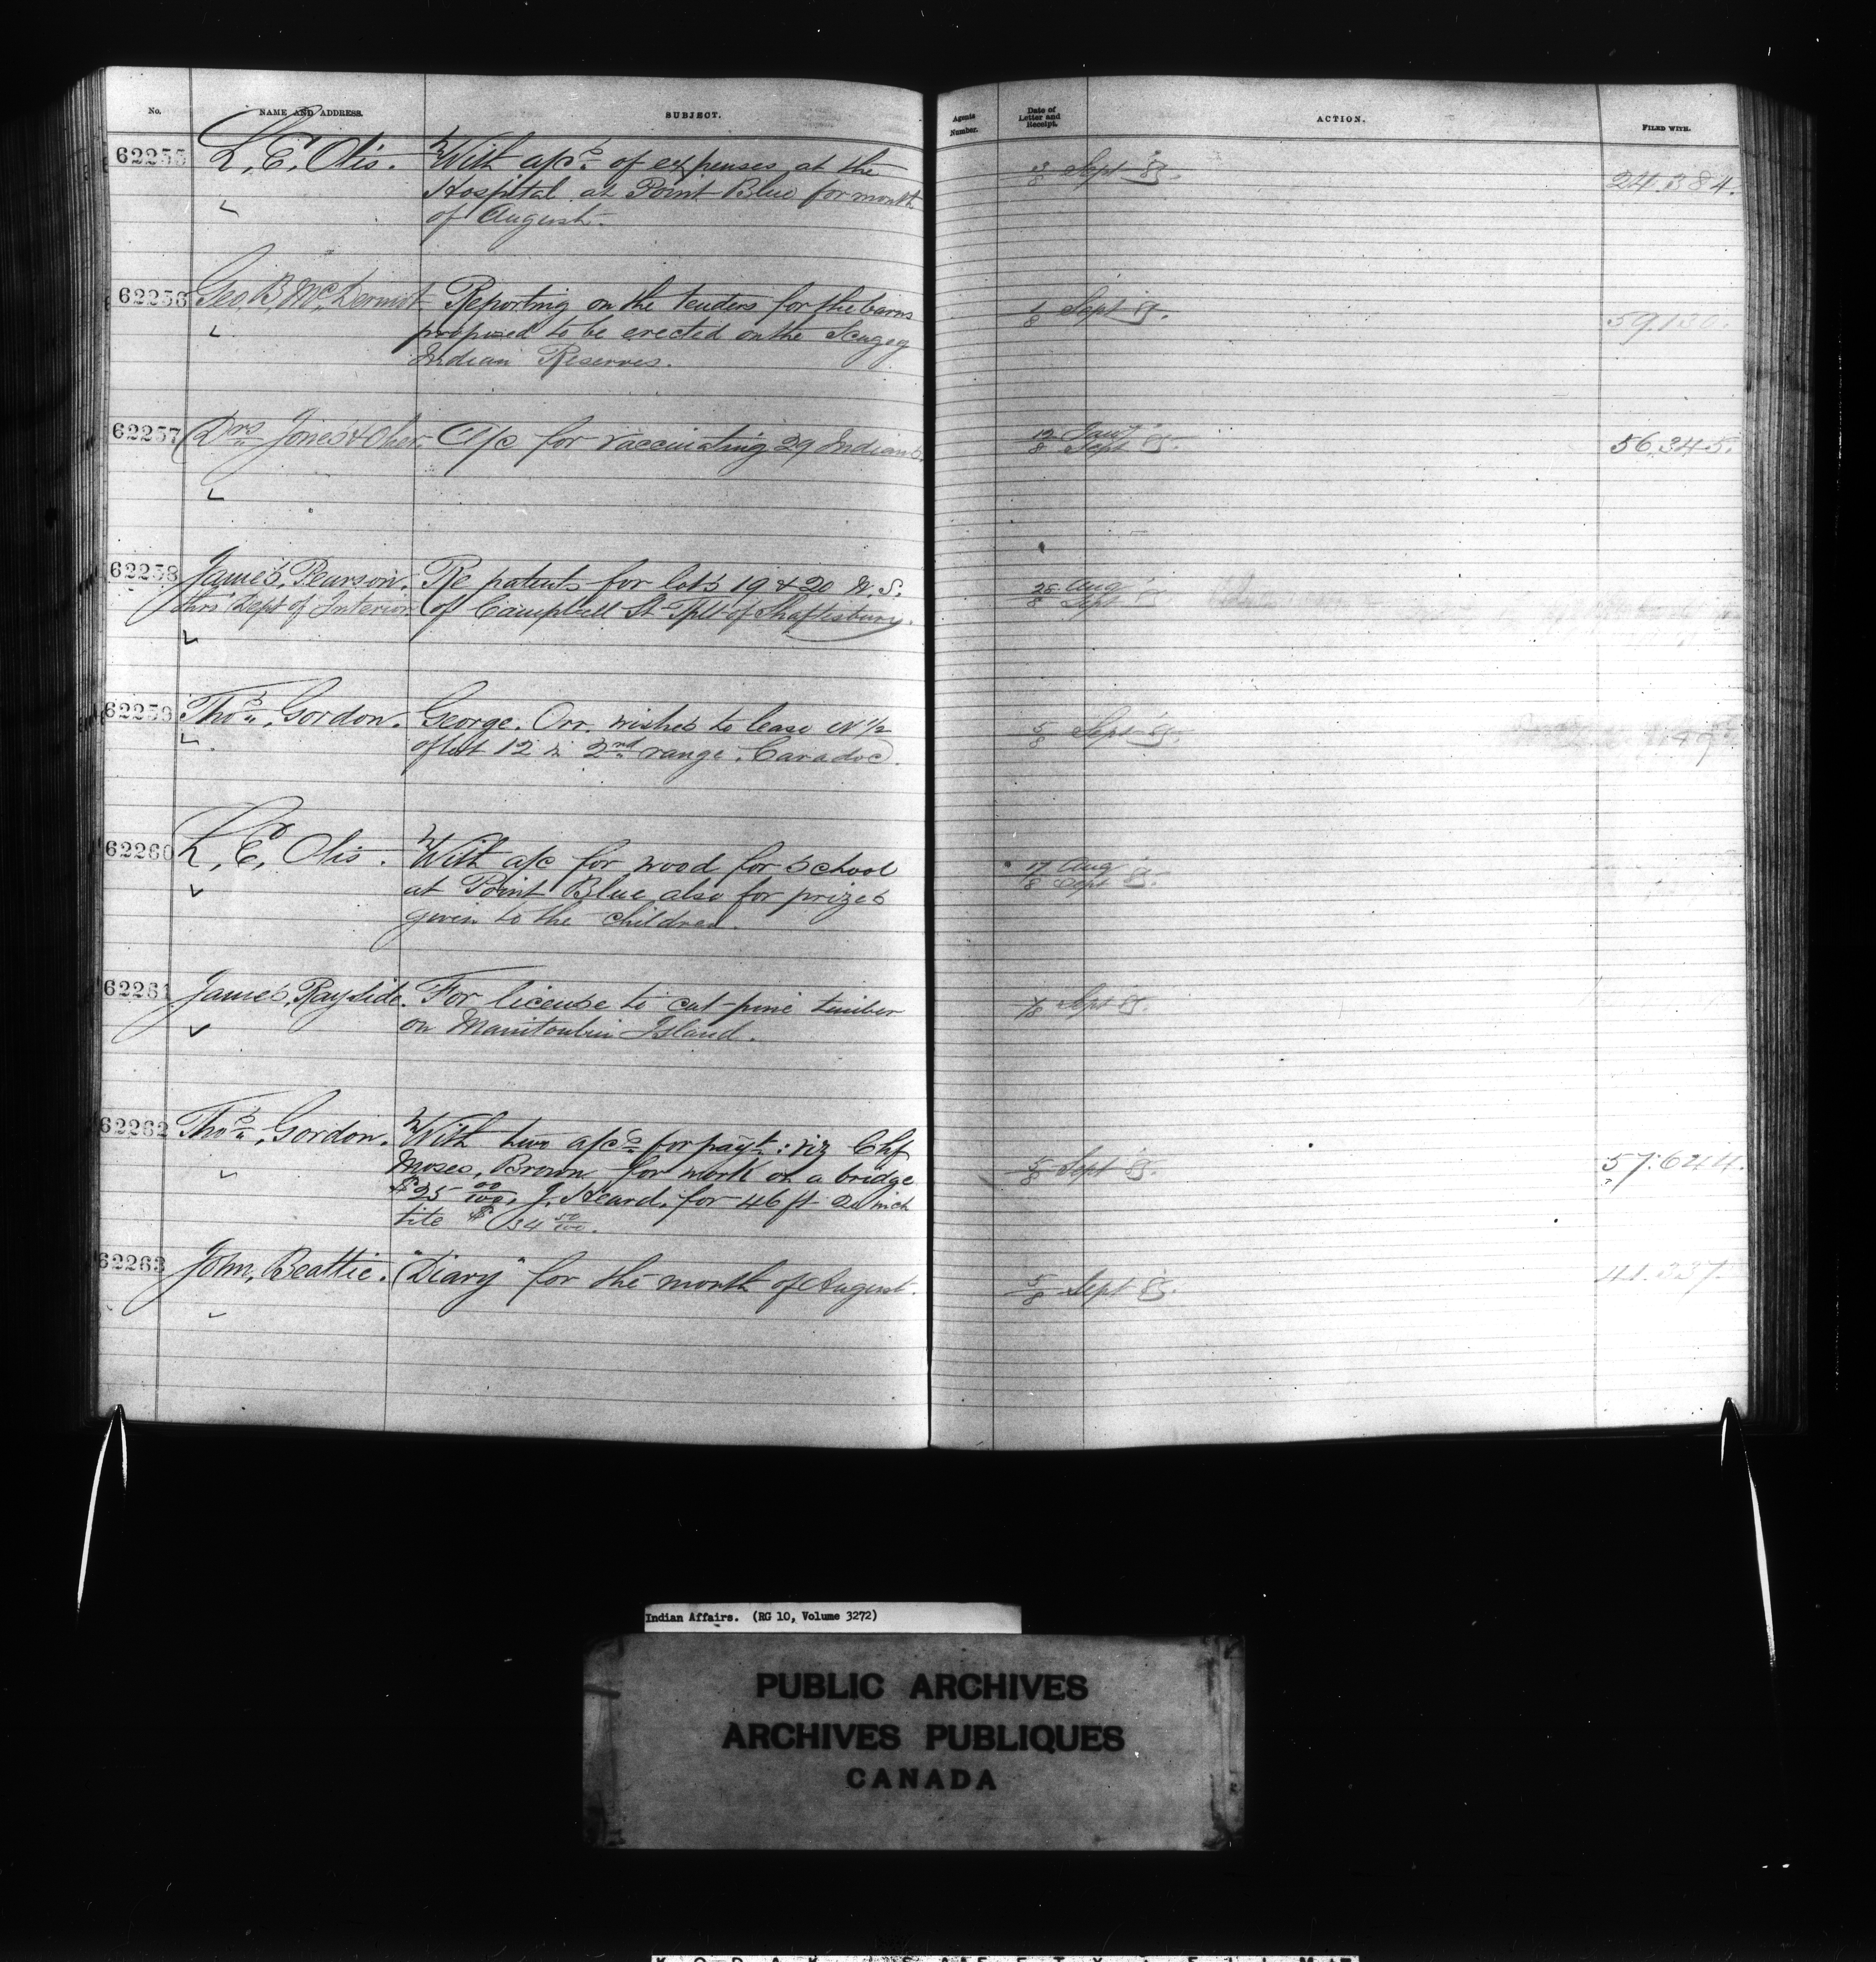 No. NAME AND ADDRESS. SUBJECT. Agents Number. Date of Letter and Receipt. ACTION. FILED WITH.
62255 L. E. Otis. With a/cs of expenses at the 3/8 Sept 85. 24.384.
Hospital at Point Blue for month
of August.
62256 Geo. B. McDermot Reporting on the tenders for the barns 1/8 Sept 85. 59130.
proposed to be erected on the Scugog
Indian Reserves.
62257 Drs Jones & A/c for vaccinating 29 Indians. 12/8 Sept 85. 56.345.
62258 James Pearson. Re patents for lots 19 & 20 W. S. 28 Aug
thro' Dept of Interior of Campbell St Tplt of Shaftesbury. 8 Sept 85.
62259 Thos. Gordon. George Orr wishes to lease N 1/2 5/8 Sept 85.
of lot 12 in 2nd range. Caradoc.
62260 L. E. Otis. With a/c for wood for School 17 Aug
at Point Blue also for prizes 8 Sept 85.
given to the children.
62261 James Rayside. For license to cut pine timber 7/8 Sept 85.
on Manitoulin Island.
62262 Thos. Gordon. With two a/cs for payt: viz Chf
Moses Brown for work on a bridge 5/8 Sept 85. 57.644.
$25 00/100. J. Heard. for 46 ft 20 inch
tile $34 50/100.
62263 John Beattie. "Diary" for the month of August. 5/8 Sept 85. 41.337.
Indian Affairs. (RG 10, Volume 3272)
PUBLIC ARCHIVES
ARCHIVES PUBLIQUES
CANADA